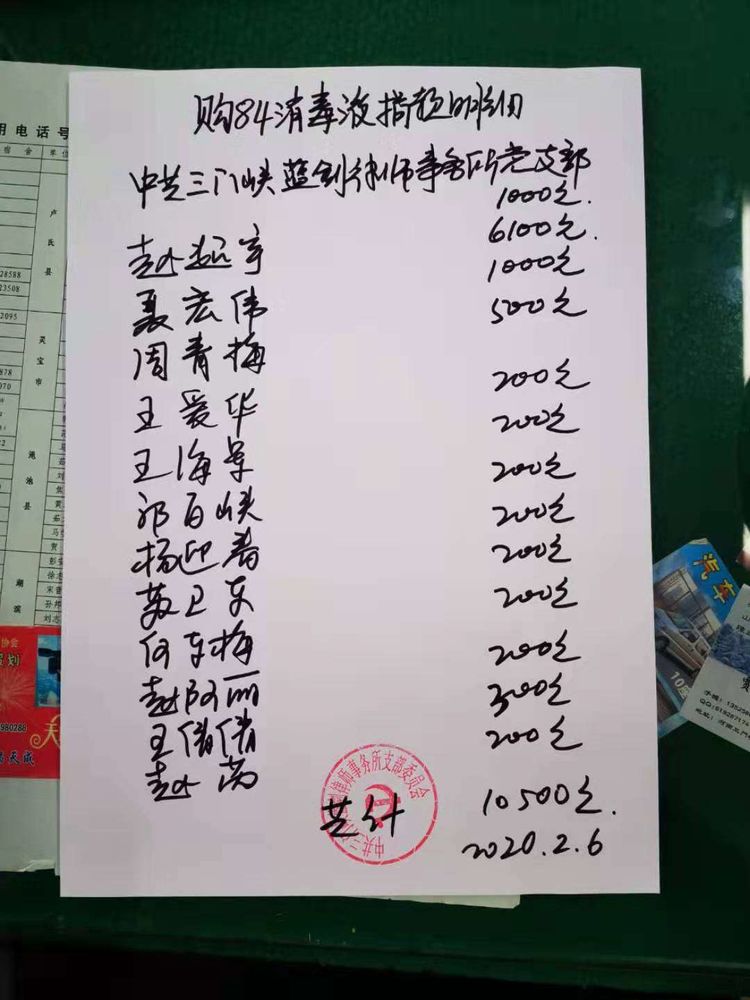 购84消毒液捐款明细
中共三门峡蓝剑律师事务所党支部
1000元.
赵超宇 6100元.
聂宏伟 1000元
周青梅 500元
王爱华 200元
王海景 200元
祁百峡 200元
杨迎春 200元
苏卫东 200元
何东梅 200元
赵阿丽 200元
王倩倩 300元
赵芮 200元
共计 10500元.
2020.2.6
律师事务所支部委员会
中共三
用电话号
宿舍
单位
卢氏县
28588
23508
2095
灵宝市
878
070
渑池县
湖滨
协会
策划
980286
汽车